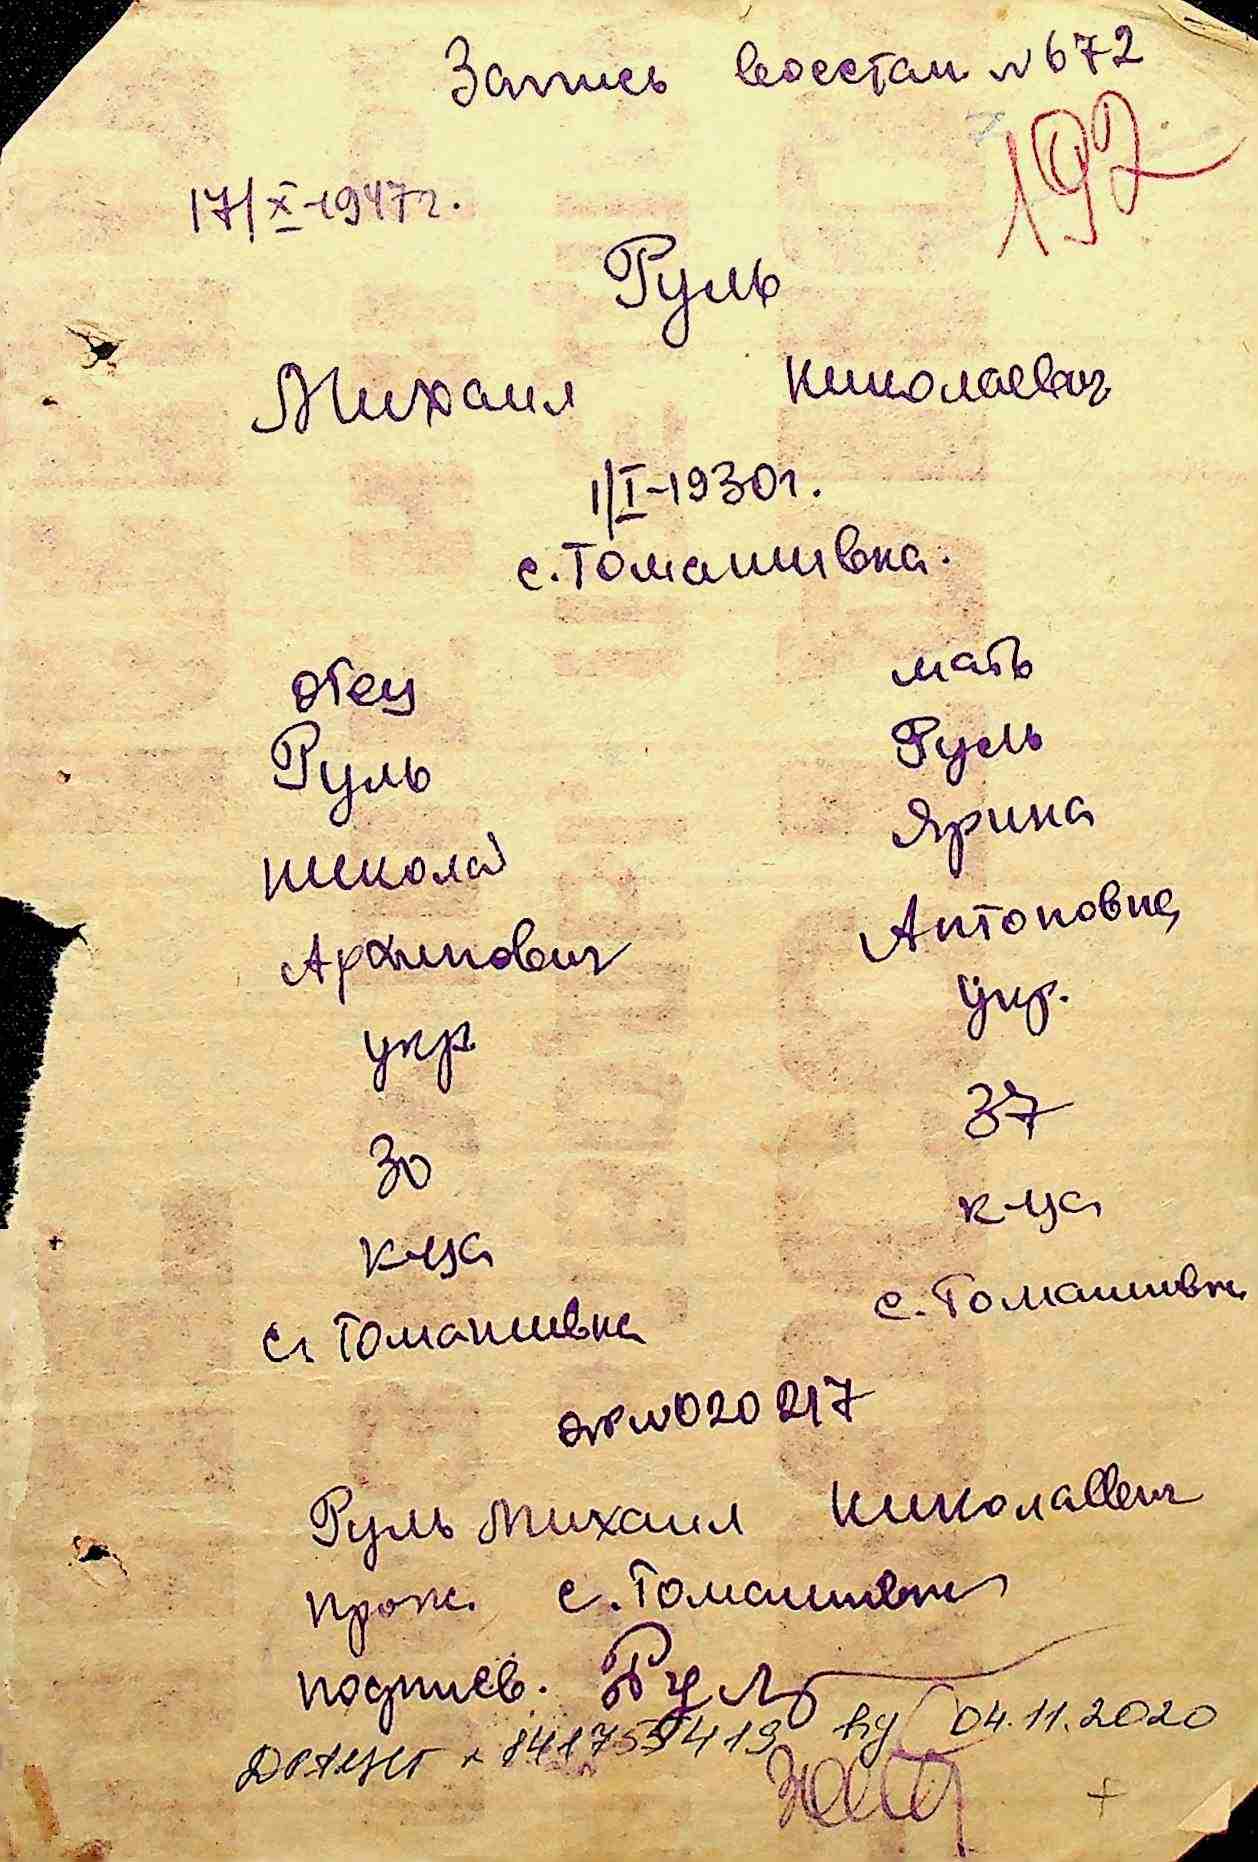 Запись восстан. № 672
192
17/X-1947 г.
Руль
Михаил Николаевич
1/I-1930 г.
с. Томашивка.
отец мать
Руль Руль
Николай Ярина
Архипович Антоновна
укр укр.
30 37
к-ца к-ца
с. Томашивка с. Томашивка
№ 020217
Руль Михаил Николаевич
прож. с. Томашивка
подпись. Руль
841755419 04.11.2020